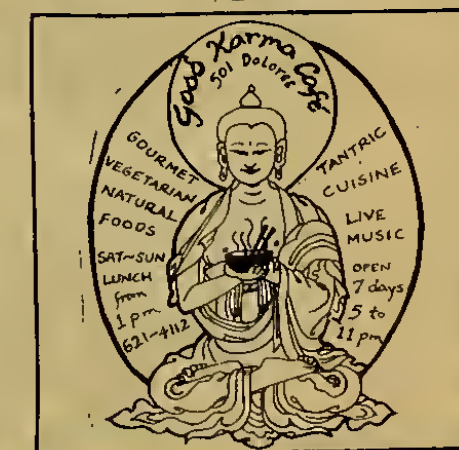 Good Karma Café
501 Dolores
GOURMET
VEGETARIAN
NATURAL
FOODS
SAT~SUN
LUNCH
from
1 pm
621~4112
TANTRIC
CUISINE
LIVE
MUSIC
OPEN
7 days
5 to
11 pm